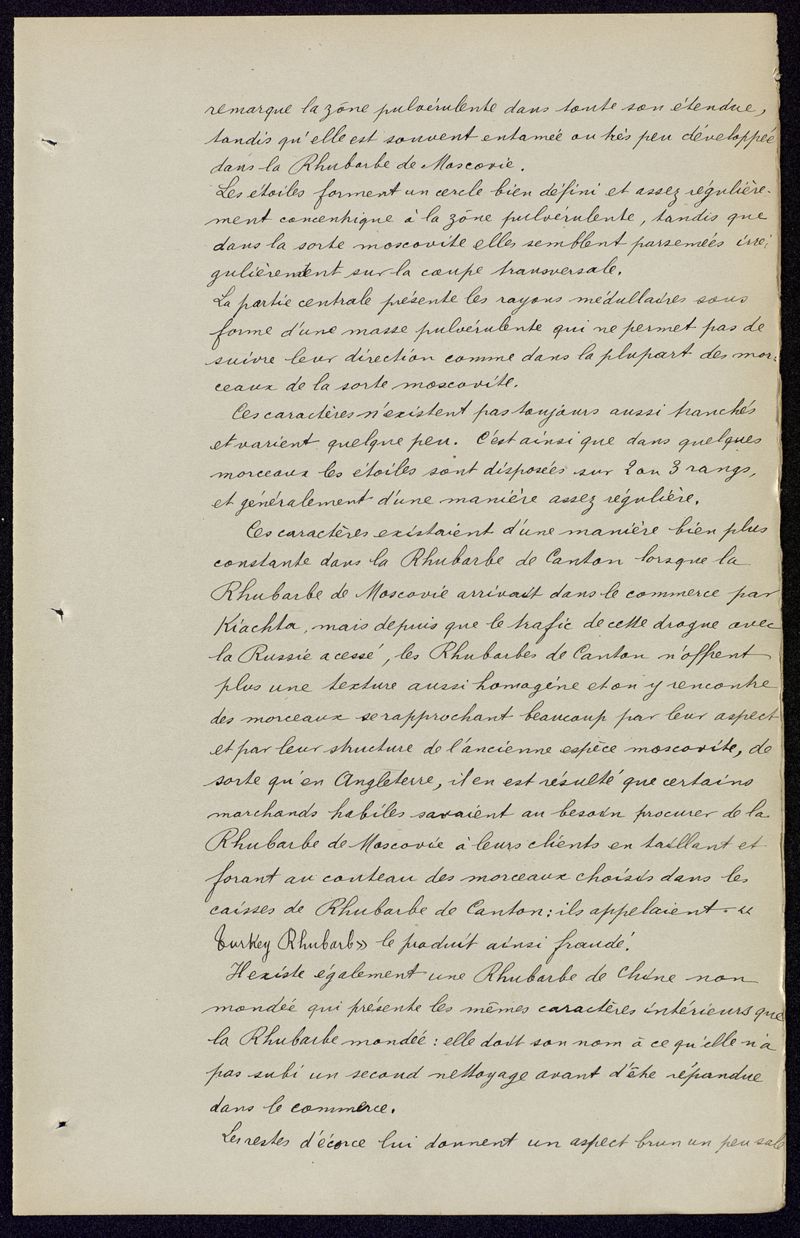 remarque la zône pulvérulente dans toute son étendue,
tandis qu'elle est souvent entamée ou très peu développée
dans la Rhubarbe de Moscovie.
Les étoiles forment un cercle bien défini et assez régulière-
ment concentrique à la zône pulvérulente, tandis que
dans la sorte moscovite elles semblent parsemées irré-
gulièrement sur la coupe transversale.
La partie centrale présente les rayons médullaires sous
forme d'une masse pulvérulente qui ne permet pas de
suivre leur direction comme dans la plupart des mor-
ceaux de la sorte moscovite.
Ces caractères n'existent pas toujours aussi tranchés
et varient quelque peu. C'est ainsi que dans quelques
morceaux les étoiles sont disposées sur 2 ou 3 rangs,
et généralement d'une manière assez régulière.
Ces caractères existaient d'une manière bien plus
constante dans la Rhubarbe de Canton lorsque la
Rhubarbe de Moscovie arrivait dans le commerce par
Kiachta, mais depuis que le trafic de cette drogue avec
la Russie a cessé, les Rhubarbes de Canton n'offrent
plus une texture aussi homogène et on y rencontre
des morceaux se rapprochant beaucoup par leur aspect
et par leur structure de l'ancienne espèce moscovite, de
sorte qu'en Angleterre, il en est résulté que certains
marchands habiles savaient au besoin procurer de la
Rhubarbe de Moscovie à leurs clients en taillant et
forant au couteau des morceaux choisis dans les
caisses de Rhubarbe de Canton; ils appelaient «
Turkey Rhubarb» le produit ainsi fraudé.
Il existe également une Rhubarbe de Chine non
mondée qui présente les mêmes caractères intérieurs que
la Rhubarbe mondée : elle doit son nom à ce qu'elle n'a
pas subi un second nettoyage avant d'être répandue
dans le commerce.
Les restes d'écorce lui donnent un aspect brun un peu sale